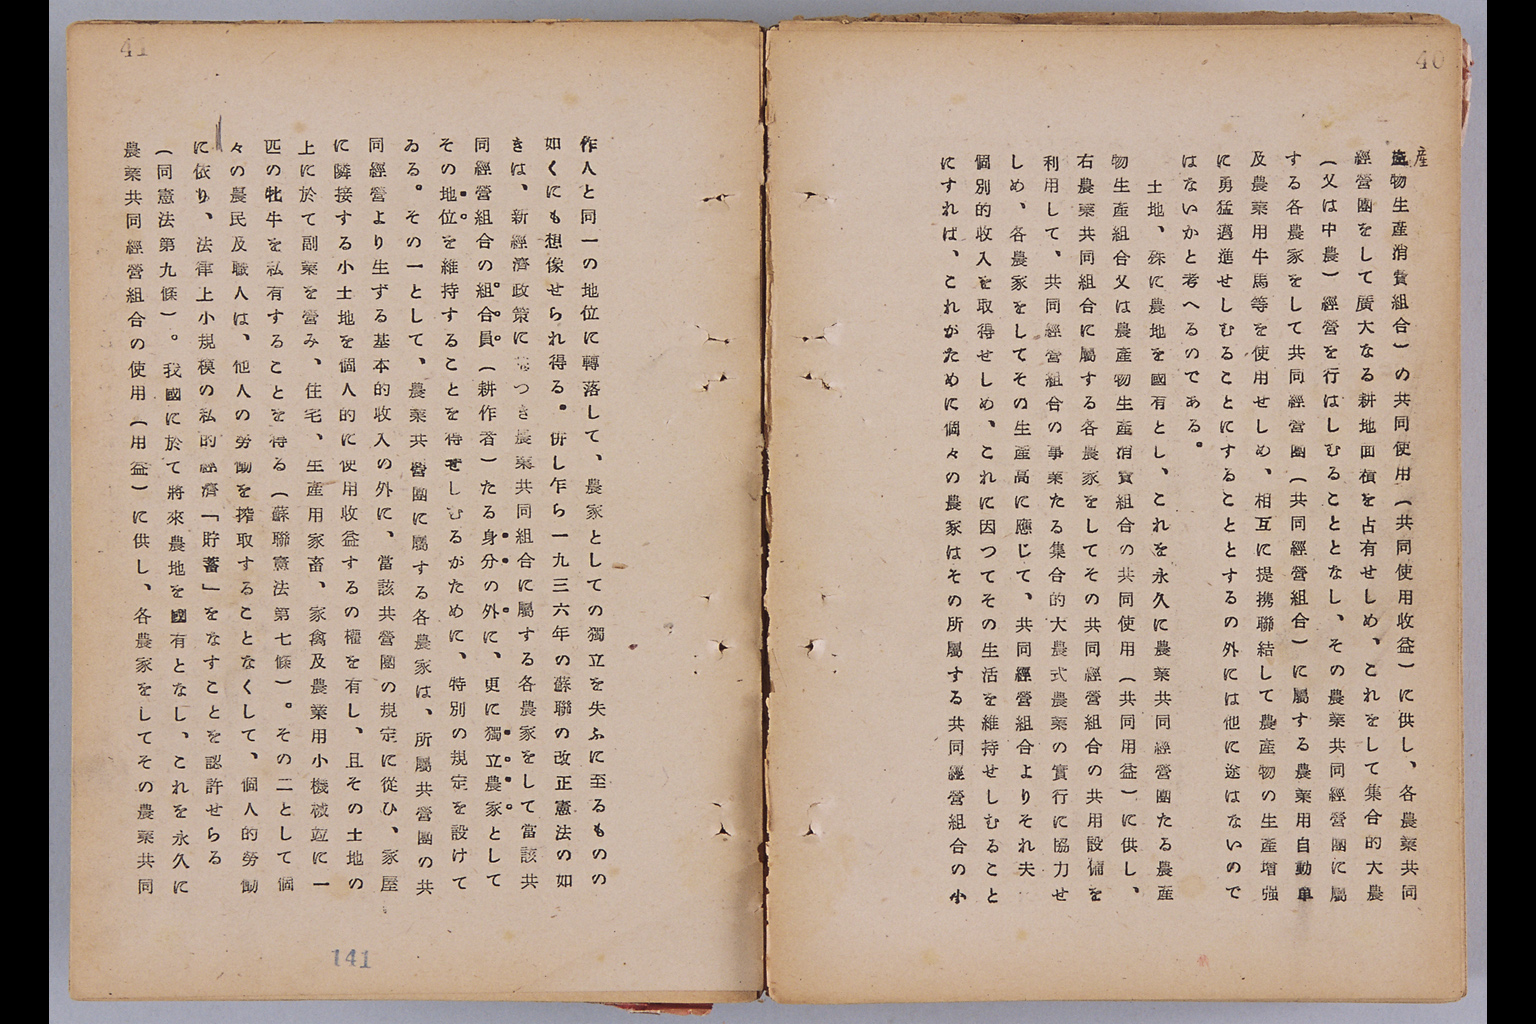 40
産
物生産消費組合)の共同使用(共同使用收益)に供し、各農業共同
經營團をして廣大なる耕地面積を占有せしめ、これをして集合的大農
(又は中農)經營を行はしむることとなし、その農業共同經營團に屬
する各農家をして共同經營團(共同經營組合)に屬する農業用自動車
及農業用牛馬等を使用せしめ、相互に提携聯結して農産物の生産增强
に勇猛邁進せしむることにすることとするの外には他に途はないので
はないかと考へるのである。
土地、殊に農地を國有とし、これを永久に農業共同經營團たる農産
物生産組合又は農産物生産消費組合の共同使用(共同用益)に供し、
右農業共同組合に屬する各農家をしてその共同經營組合の共用設備を
利用して、共同經營組合の事業たる集合的大農式農業の實行に協力せ
しめ、各農家をしてその生産高に應じて、共同經營組合よりそれ夫
個別的收入を取得せしめ、これに因つてその生活を維持せしむること
にすれば、これがために個々の農家はその所屬する共同經營組合の小
41
作人と同一の地位に轉落して、農家としての獨立を失ふに至るものの
如くにも想像せられ得る。併し乍ら一九三六年の蘇聯の改正憲法の如
きは、新經濟政策に つき農業共同組合に屬する各農家をして當該共
同經營組合の組合員(耕作者)たる身分の外に、更に獨立農家として
その地位を維持することを得せしむるがために、特別の規定を設けて
ゐる。その一として、農業共營團に屬する各農家は、所屬共營團の共
同經營より生ずる基本的收入の外に、當該共營團の規定に從ひ、家屋
に隣接する小土地を個人的に使用收益するの權を有し、且その土地の
上に於て副業を營み、住宅、生産用家畜、家禽及農業用小機械竝に一
匹の牝牛を私有することを得る(蘇聯憲法第七條)。その二として個
々の農民及職人は、他人の勞働を搾取することなくして、個人的勞働
に依り、法律上小規模の私的經濟「貯蓄」をなすことを認許せらる
(同憲法第九條)。我國に於て將來農地を國有となし、これを永久に
農業共同經營組合の使用(用益)に供し、各農家をしてその農業共同
141